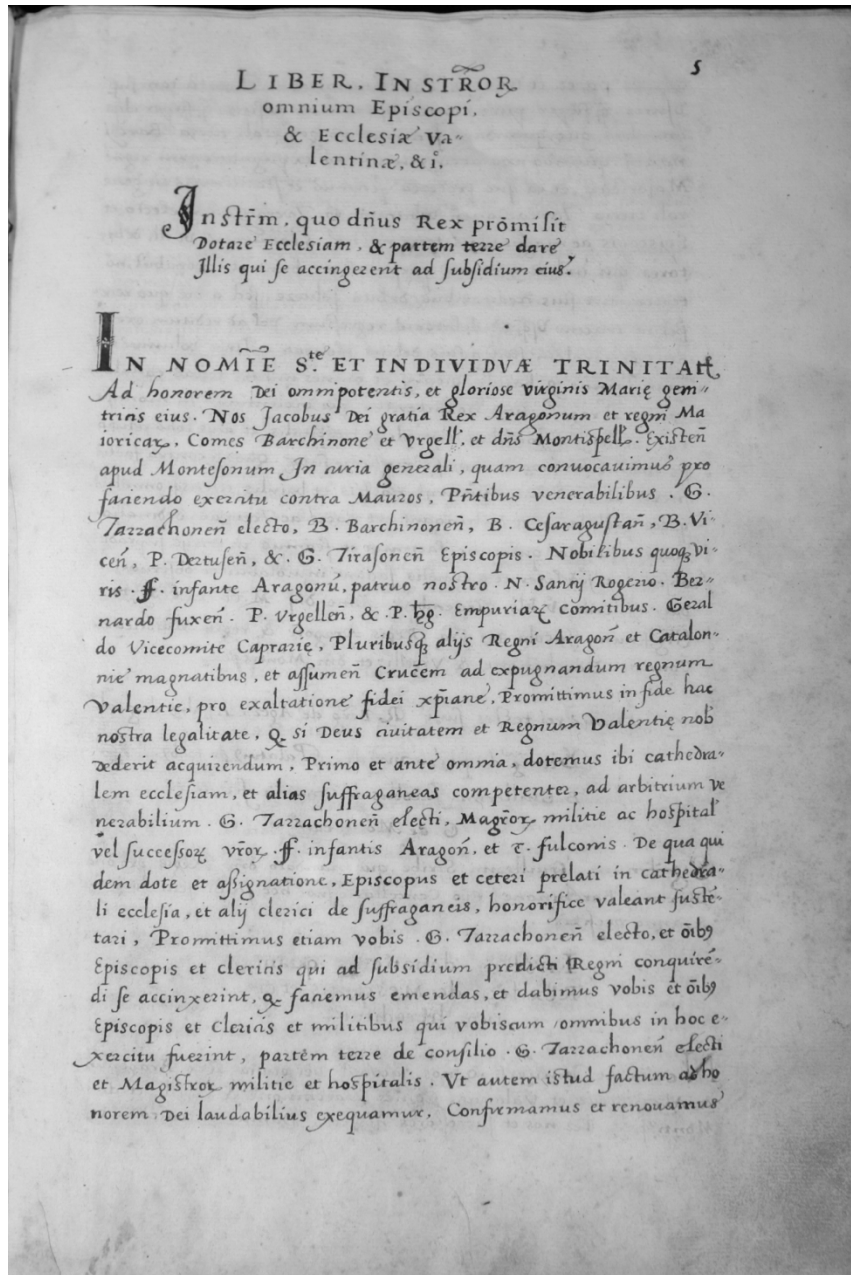 5
LIBER. INSTR̃OR̃
omnium Episcopi,
& Ecclesiæ Va-
lentinæ, & i°.
Instr̃m, quo dñus Rex prõmisit
Dotare Ecclesiam, & partem terre dare
Illis qui se accingerent ad subsidium eius.
IN NOMĨE S.te ET INDIVIDVÆ TRINITATꝭ
Ad honorem Dei omnipotentis, et gloriose virginis Marię geni-
tricis eius. Nos Jacobus Dei gratia Rex Aragonum et regni Ma
ioricaꝝ, Comes Barchinone et Vrgell̃, et dñs Montispell̃. Existeñ
apud Montesonum In curia generali, quam conuocauimus pro
faciendo exercitu contra Mauros, Pñtibus venerabilibus. G.
Tarrachoneñ electo, B. Barchinoneñ, B. Cesaragustañ, B. Vi-
ceñ, P. Dertuseñ, &. G. Tirasoneñ Episcopis. Nobilibus quoqꝫ vi-
ris. ff. infante Aragonũ, patruo nostro. N. Sancij Rogerio. Ber-
nardo fuxeñ. P. Vrgelleñ, &. P. hg. Empuriaꝝ comitibus. Geral
do Vicecomite Caprarię, Pluribusqꝫ alijs Regni Aragoñ et Catalon-
nie magnatibus, et assumeñ Crucem ad expugnandum regnum
Valentie, pro exaltatione fidei xp̃iane, Promittimus in fide hac
nostra legalitate, ꝙ si Deus ciuitatem et Regnum Valentię nob̃
dederit acquirendum, Primo et ante omnia, dotemus ibi cathedra-
lem ecclesiam, et alias suffraganeas competenter, ad arbitrium ve
nerabilium. G. Tarrachoneñ electi, Magr̃oꝝ, militie ac hospital̃
vel successoꝝ vr̃oꝝ. ff. infantis Aragoñ, et T. fulconis. De qua qui
dem dote et assignatione, Episcopus et ceteri prelati in cathedra-
li ecclesia, et alij clerici de suffraganeis, honorifice valeant suste-
tari, Promittimus etiam vobis. G. Tarrachoneñ electo, et õibꝰ
Episcopis et clericis qui ad subsidium predicti Regni conquirẽ-
di se accinxerint, ꝙ faciemus emendas, et dabimus vobis et õibꝰ
Episcopis et Clericis et militibus qui vobiscum omnibus in hoc e-
xercitu fuerint, partem terre de consilio. G. Tarrachoneñ electi
et Magistroꝝ militie et hospitalis. Vt autem istud factum ad ho
norem Dei laudabilius exequamur, Confirmamus et renouamus